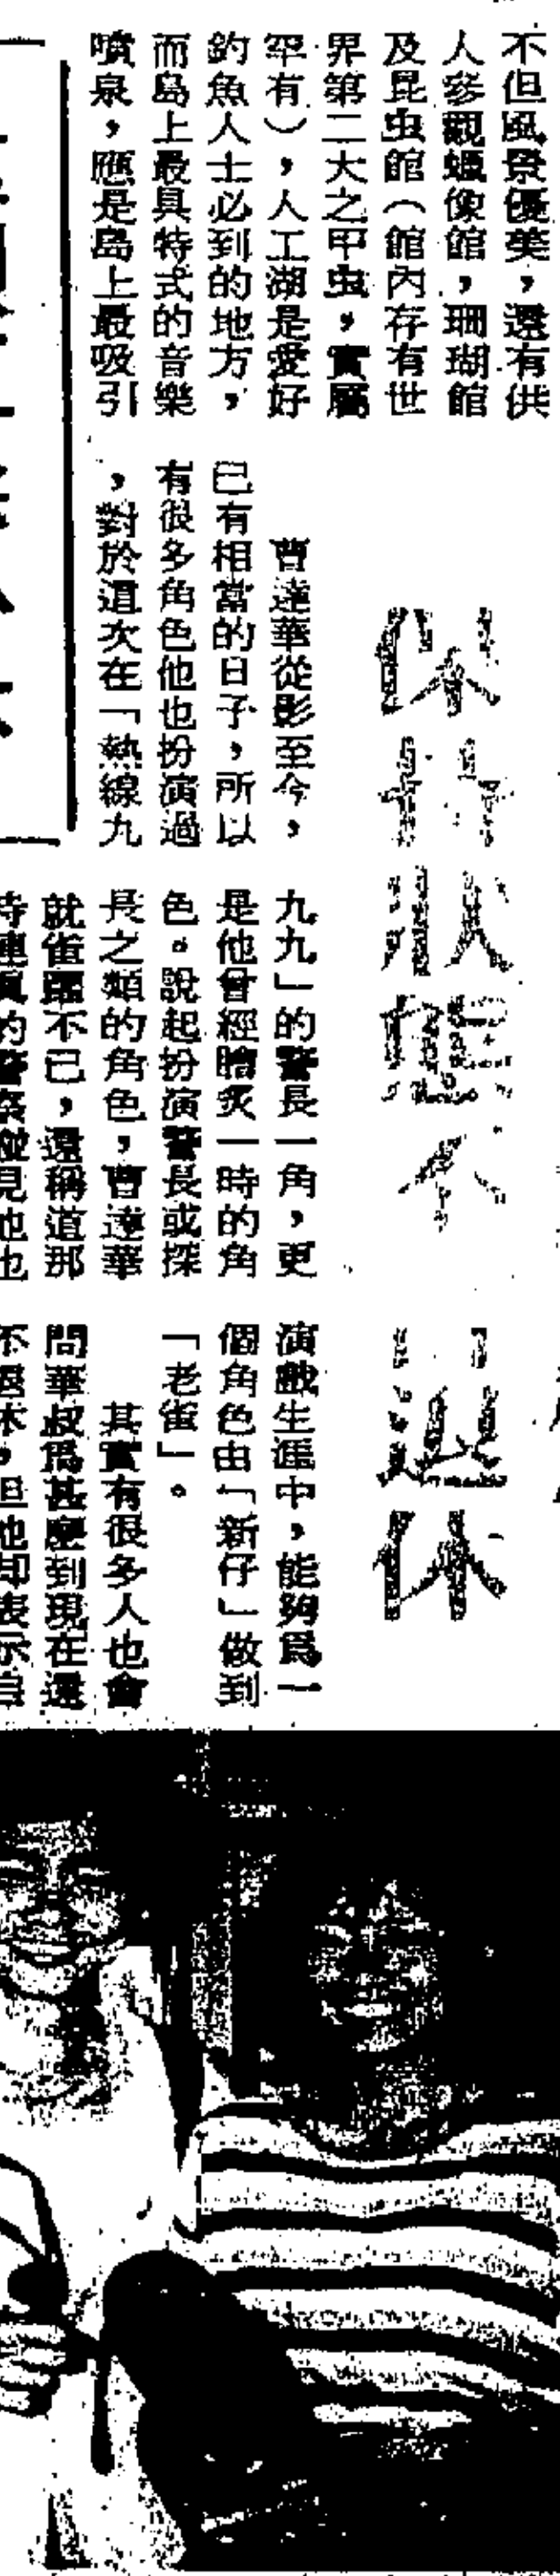 不但風景優美，還有供
人參觀蠟像館，珊瑚館
及昆虫館（館內存有世
界第二大之甲虫，實屬
罕有），人工湖是愛好
釣魚人士必到的地方，
而島上最具特式的音樂
噴泉，應是島上最吸引
保持狀態不
退休
曹達華從影至今，
已有相當的日子，所以
有很多角色他也扮演過
，對於這次在「熱線九
九九」的警長一角，更
是他曾經膾炙一時的角
色。說起扮演警長或探
長之類的角色，曹達華
就雀躍不已，還稱道那
時連真的警察碰見他也
演戲生涯中，能夠爲一
個角色由「新仔」做到
「老雀」。
其實有很多人也會
問華叔爲甚麼到現在還
不退休，但他却表示自